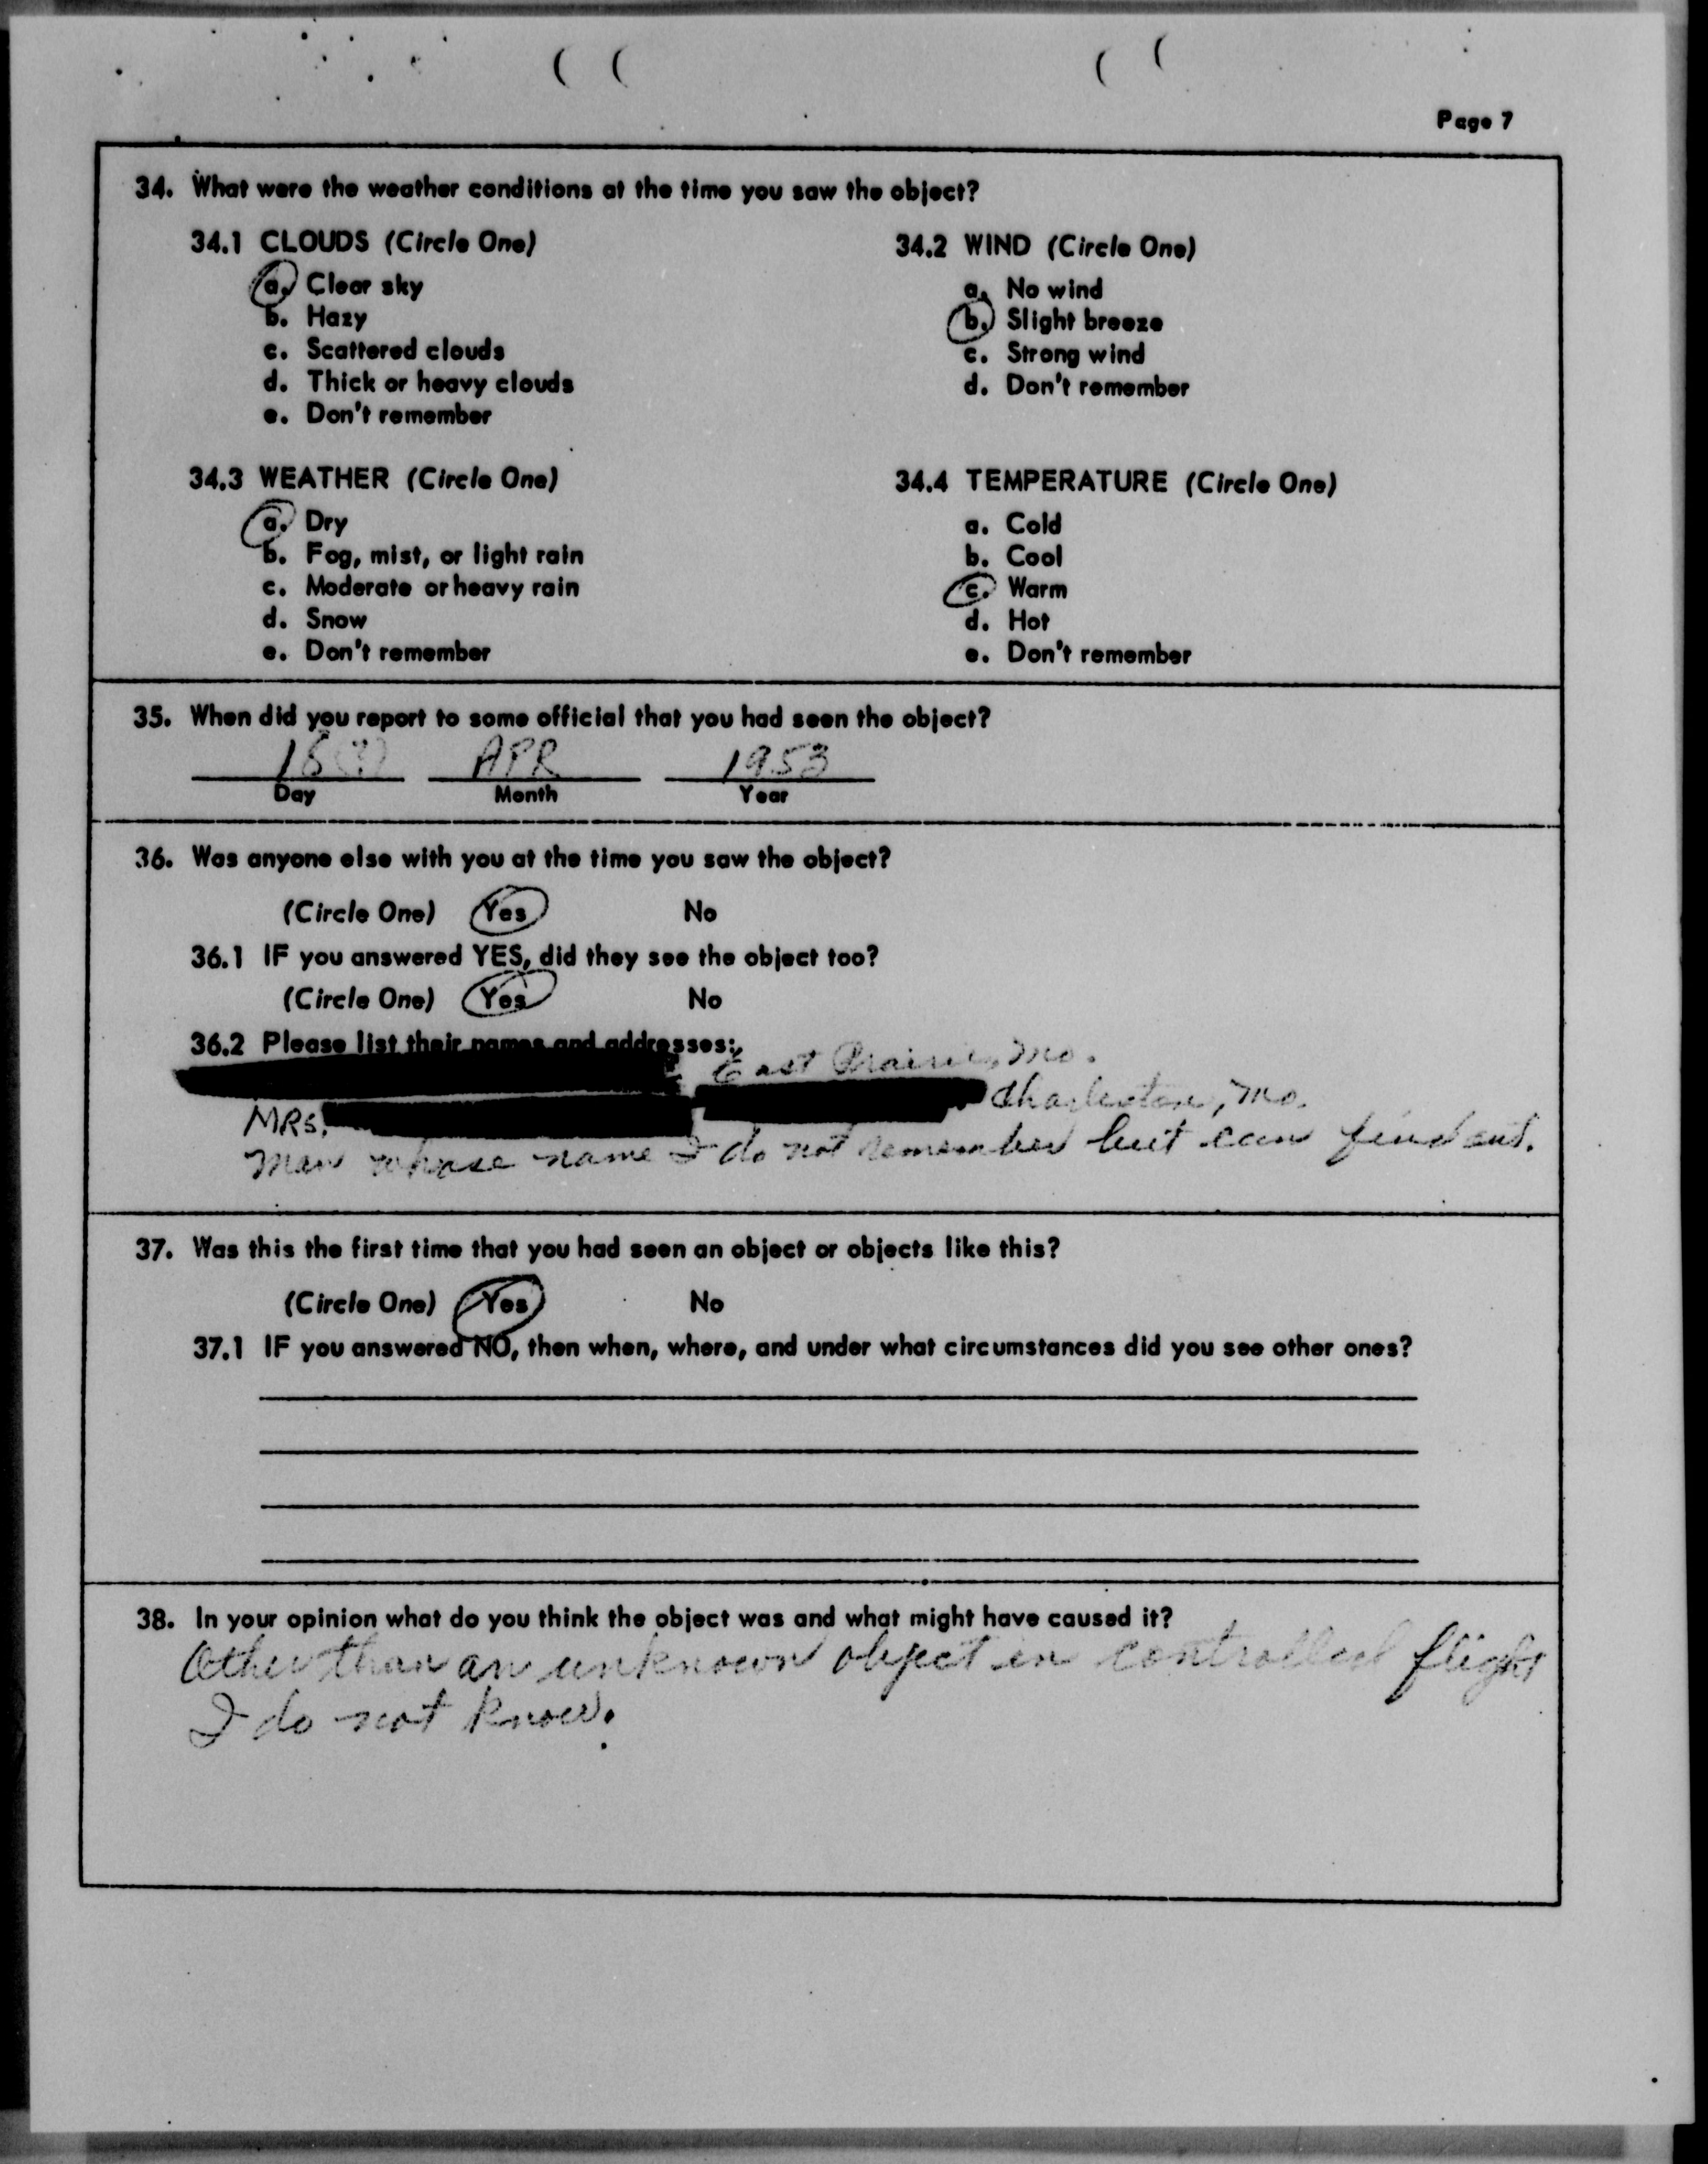 Page 7
34. What were the weather conditions at the time you saw the object?
34.1 CLOUDS (Circle One)
a. Clear sky
b. Hazy
c. Scattered clouds
d. Thick or heavy clouds
e. Don't remember
34.2 WIND (Circle One)
a. No wind
b. Slight breeze
c. Strong wind
d. Don't remember
34.3 WEATHER (Circle One)
a. Dry
b. Fog, mist, or light rain
c. Moderate or heavy rain
d. Snow
e. Don't remember
34.4 TEMPERATURE (Circle One)
a. Cold
b. Cool
c. Warm
d. Hot
e. Don't remember
35. When did you report to some official that you had seen the object?
APR 1953
Day Month Year
36. Was anyone else with you at the time you saw the object?
(Circle One) Yes No
36.1 IF you answered YES, did they see the object too?
(Circle One) Yes No
36.2 Please list their names and addresses:
East Prairie, Mo.
MRS. Charleston, Mo.
Man whose name I do not remember but can find out.
37. Was this the first time that you had seen an object or objects like this?
(Circle One) Yes No
37.1 IF you answered NO, then when, where, and under what circumstances did you see other ones?
38. In your opinion what do you think the object was and what might have caused it?
Other than an unknown object in controlled flight
I do not know.